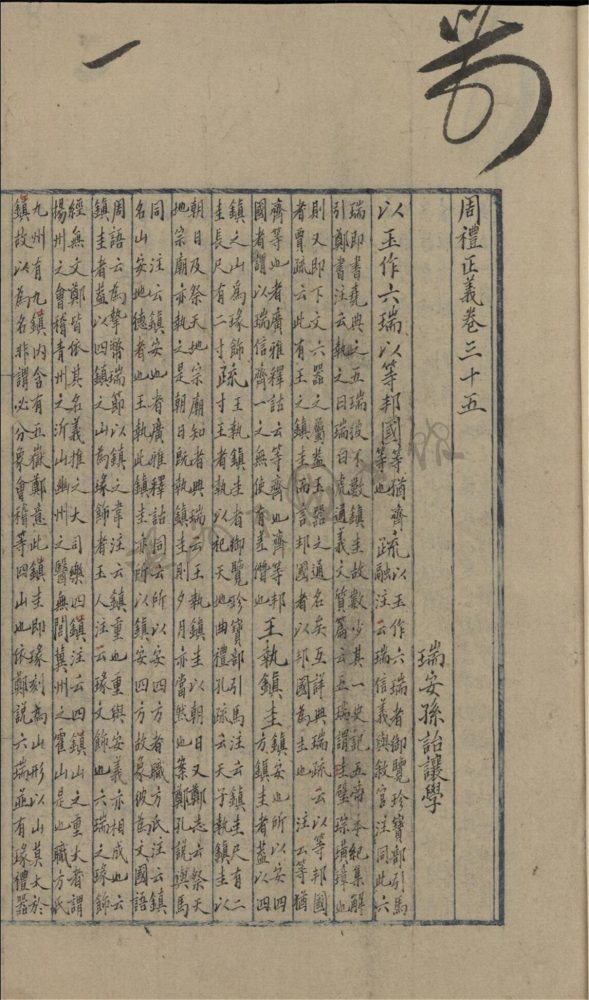 周禮正義卷三十五
瑞安孫詒讓學
以玉作六瑞以等邦國
等猶齊
等也
疏
以玉作六瑞者御覽珍寶部引馬
融注云瑞信義與敘官注同此六
瑞即書堯典之五瑞彼不數鎮圭故數少其一史記五帝本紀集解
引鄭書注云執之曰瑞白虎通義文質篇云五瑞謂圭璧琮璜璋也
則又即下文六器之屬蓋玉器之通名矣互詳典瑞疏云以等邦國
者賈疏云此有王之鎮圭而言邦國者以邦國為主也 注云等猶
齊等也者廣雅釋詁云等齊也齊等邦
國者謂以瑞信齊一之無使有差僭也
王執鎮圭
鎮安也所以安四
方鎮圭者蓋以四
鎮之山為瑑飾
圭長尺有二寸
疏
王執鎮圭者御覽珍寶部引馬注云鎮圭尺有二
寸王者執以祀天地曲禮孔疏云天子執鎮圭以
朝日及祭天地宗廟知者典瑞云王執鎮圭以朝日又鄭志云祭天
地宗廟亦執之是朝日既執鎮圭則夕月亦當然也案鄭孔説與馬
同 注云鎮安也者廣雅釋詁同云所以安四方者職方氏注云鎮
名山安地德者也此鎮圭亦所以鎮安四方故象彼為文國語
周語云為摯幣瑞節以鎮之韋注云鎮重也重與安義亦相成也云
鎮圭者蓋以四鎮之山為瑑飾者玉人注云瑑文飾也六瑞之瑑飾
經無文鄭皆依其名義推之大司樂四鎮注云四鎮山之重大者謂
揚州之會稽青州之沂山幽州之醫無閭冀州之霍山是也職方氏
九州有九鎮內含有五嶽鄭意此鎮圭即瑑刻為山形以山莫大於
鎮故以為名非謂必分象會稽等四山也依鄭説六瑞並有瑑禮器
一